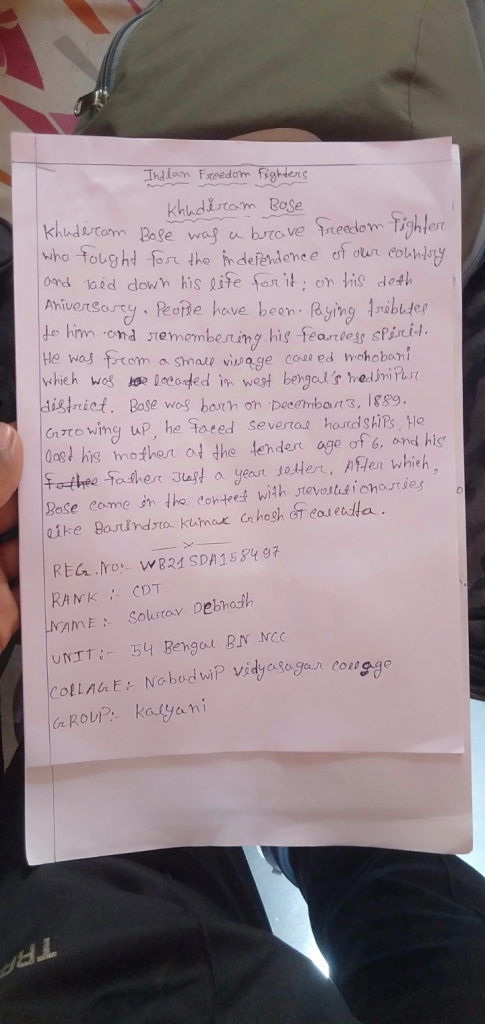 Indian Freedom Fighters
Khudiram Bose
Khudiram Bose was a brave freedom fighter
who fought for the independence of our country
and laid down his life for it; on his deth
Aniversary. People have been Paying tributes
to him and remembering his fearless spirit.
He was from a small village called mohobani
which was located in west bengal's medinipur
district. Base was barn on December 3, 1889.
Growing up, he faced several hardships. He
lost his mother at the tender age of 6, and his
father Just a year letter. After which,
Bose came in the contect with revolutionaries
like Barindra kumar Ghosh of calcutta.
REG. No:- WB21SDA158497
RANK :- CDT
NAME :- Sourav Debnath
UNIT:- 54 Bengal BN NCC
COLLAGE:- Nabadwip Vidyasagar college
GROUP:- kalyani
TRA